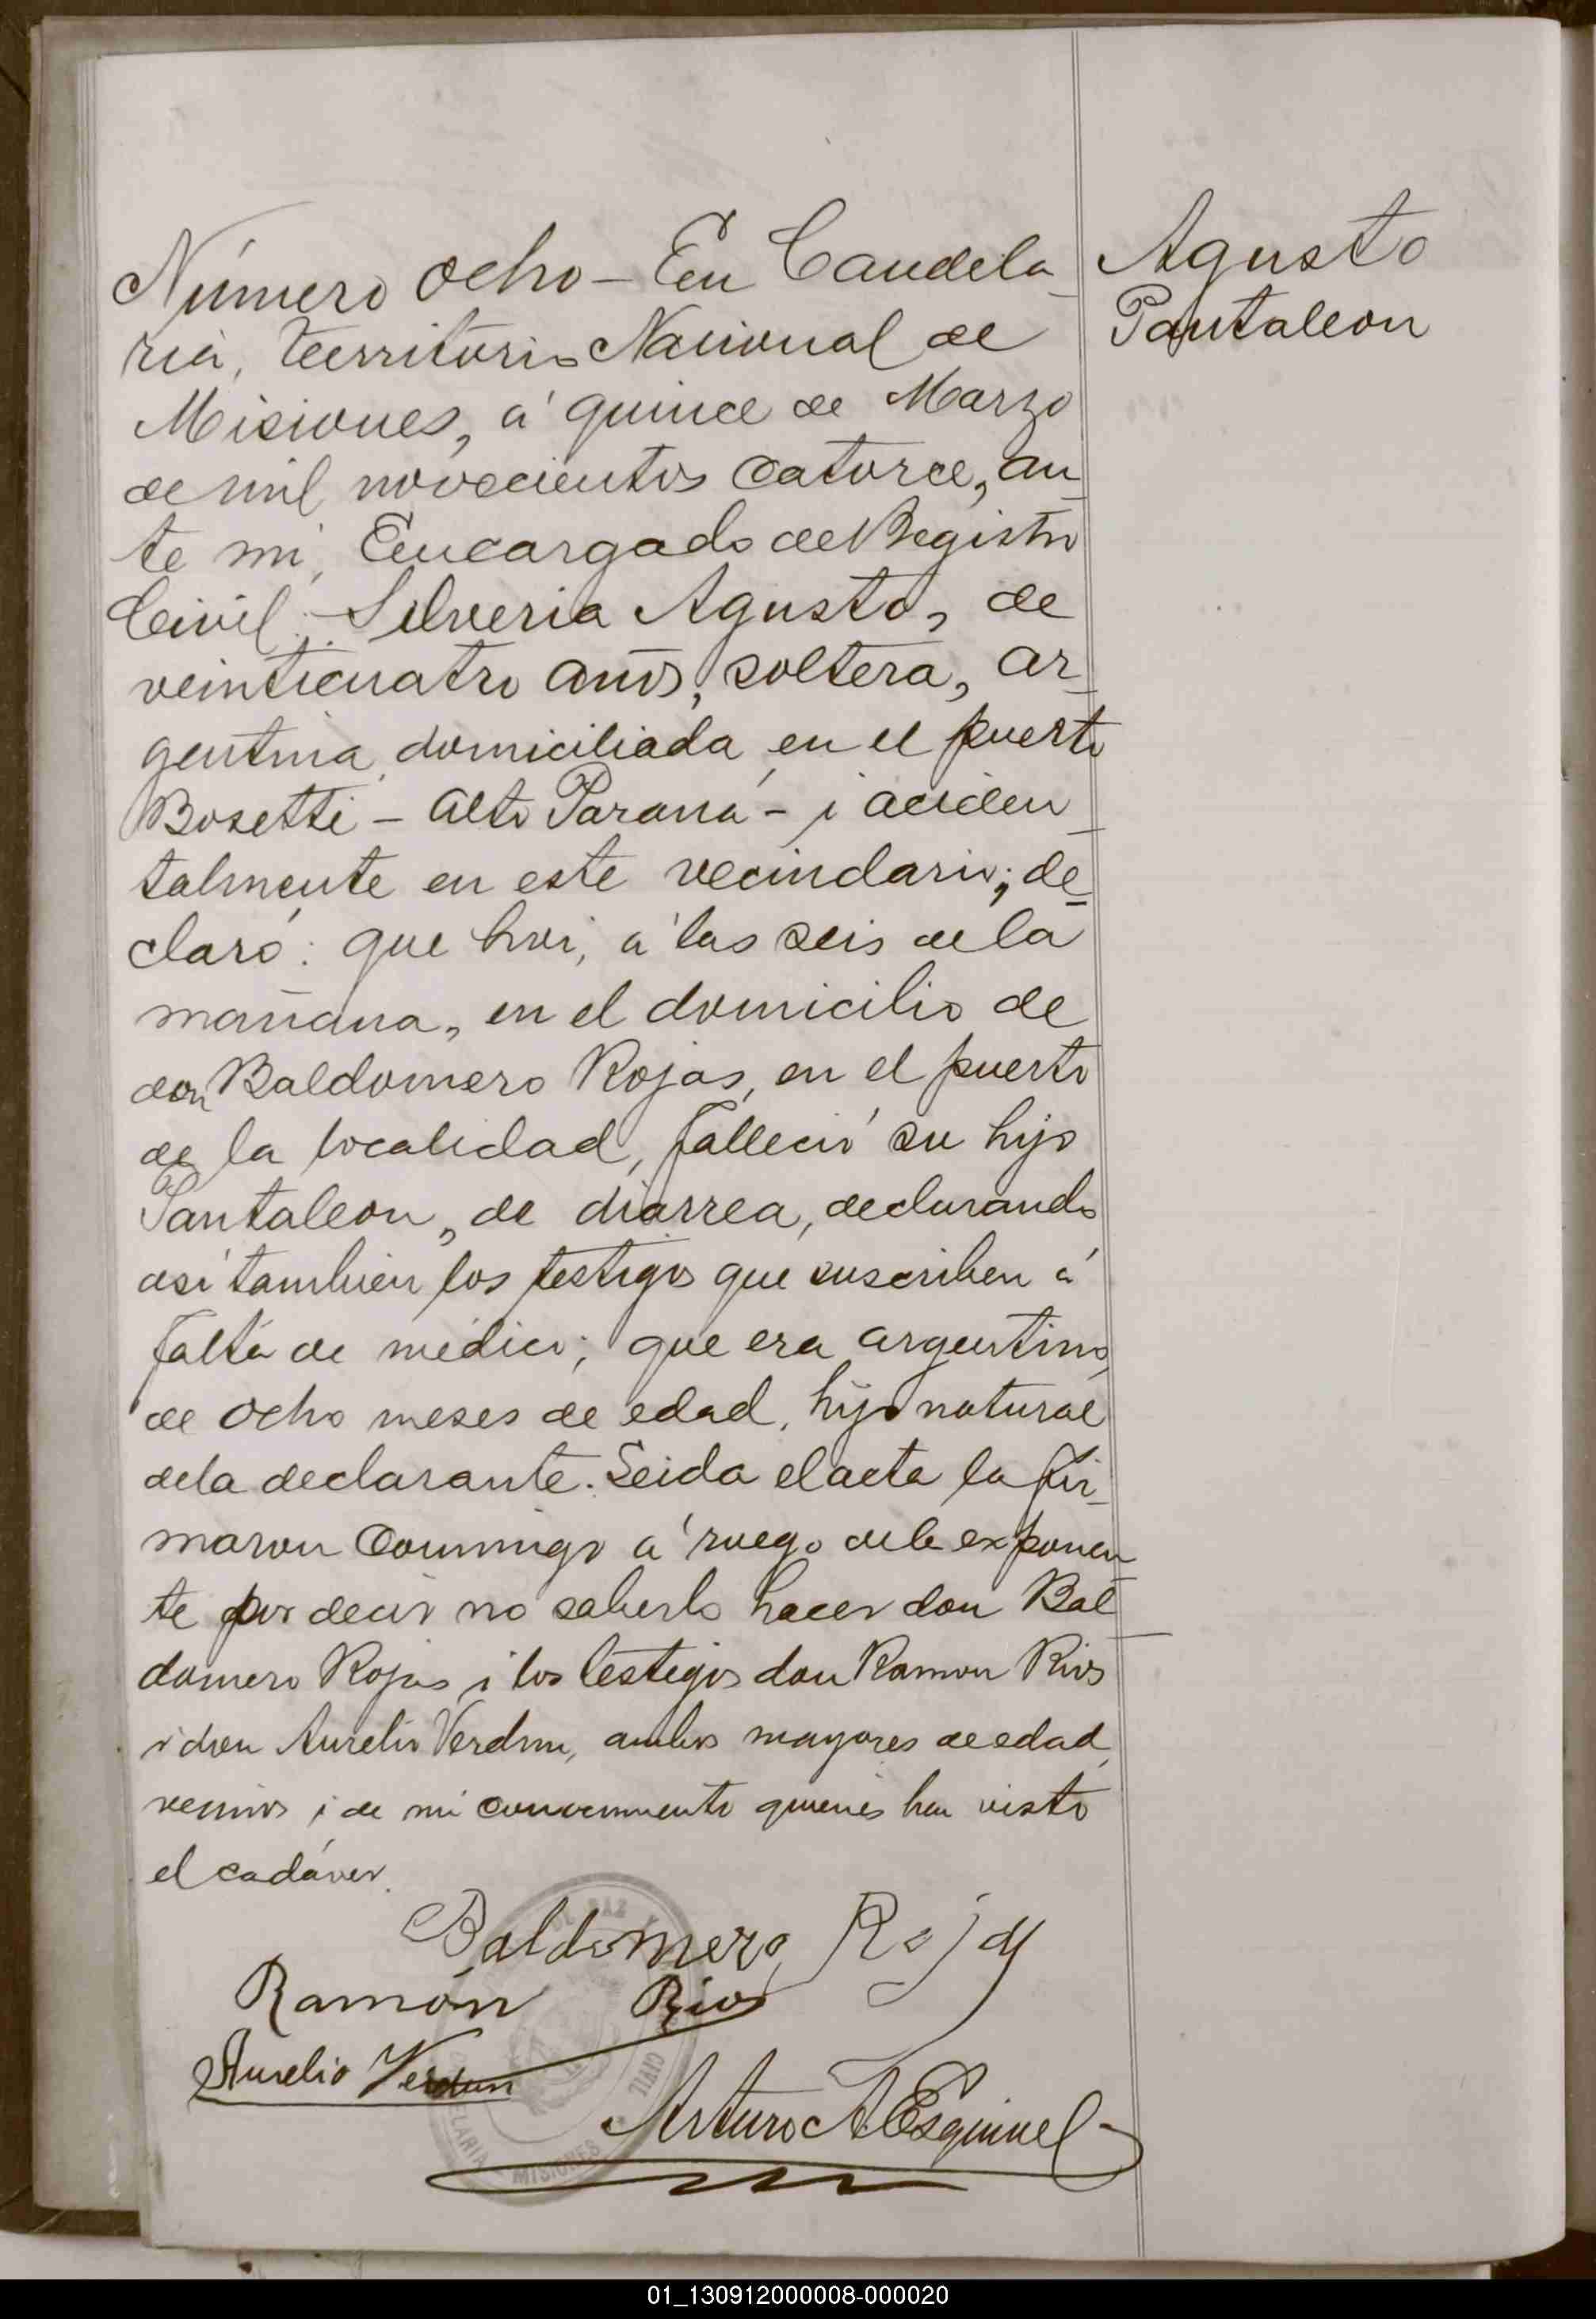 Número ocho – En Candela_
ria, territorio Nacional de
Misiones, á quince de Marzo
de mil novecientos catorce, an_
te mí, Encargado de Registro
Civil; Silveria Agusto, de
veinticuatro años, soltera, ar_
gentina, domiciliada en el puerto
Bosetti – alto Paraná – i aciden_
talmente en este vecindario; de_
claró: que hoi, á las seis de la
mañana, en el domicilio de
don Baldomero Rojas, en el puerto
de la localidad, falleció su hijo
Pantaleon, de diarrea, declarando
asi tambien los testigos que suscriben á
falta de médico; que era argentino,
de ocho meses de edad, hijo natural
de la declarante. Leida el acta la fir_
maron conmigo á ruego de la exponen_
te por decir no saberlo hacer don Bal_
domero Rojas i los testigos don Ramon Rios
i don Aurelio Verdun, ambos mayores de edad,
vecinos i de mi conocimiento quienes han visto
el cadáver.
Agusto
Pantaleon
Baldomero Rojas
Ramón Rios
Aurelio Verdun
Arturo A. Esquivel
CIVIL
MISIONES
01_130912000008-000020